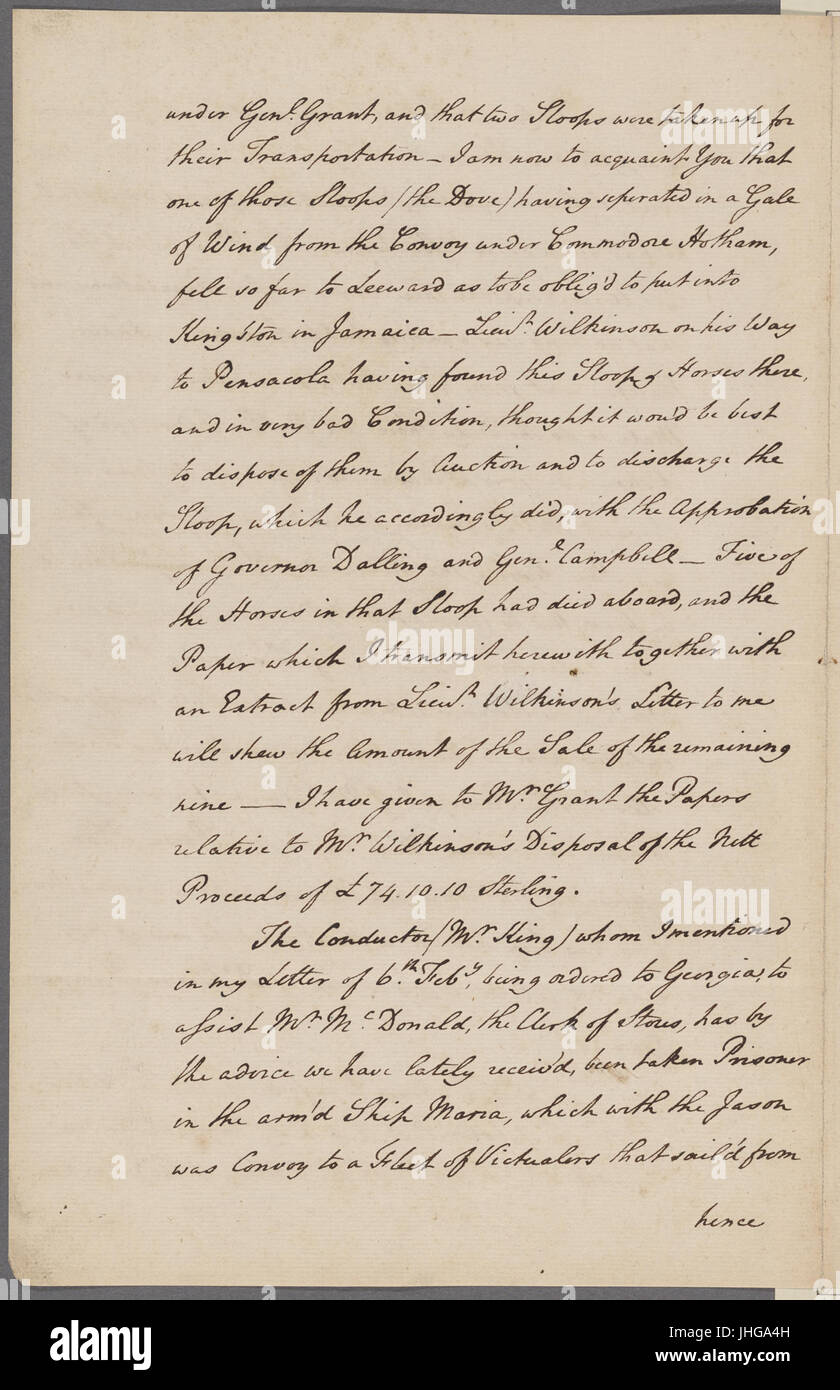 under Genl. Grant, and that two Sloops were taken up for
their Transportation — I am now to acquaint You that
one of those Sloops (the Dove) having seperated in a Gale
of Wind from the Convoy under Commodore Hotham,
fell so far to Leeward as to be oblig'd to put into
Kingston in Jamaica — Lieut. Wilkinson on his Way
to Pensacola having found this Sloop & Horses there,
and in very bad Condition, thought it wou'd be best
to dispose of them by Auction and to discharge the
Sloop, which he accordingly did, with the Approbation
of Governor Dalling and Genl. Campbell — Five of
the Horses in that Sloop had died aboard, and the
Paper which I transmit herewith together with
an Extract from Lieut. Wilkinson's Letter to me
will shew the Amount of the Sale of the remaining
nine — I have given to Mr. Grant the Papers
relative to Mr. Wilkinson's Disposal of the Nett
Proceeds of £74.10.10 Sterling.
The Conductor (Mr. King) whom I mentioned
in my Letter of 6th. Feby, being ordered to Georgia, to
assist Mr. Mc. Donald, the Clerk of Stores, has by
the advice we have lately receiv'd, been taken Prisoner
in the arm'd Ship Maria, which with the Jason
was Convoy to a Fleet of Victualers that sail'd from
hence
alamy
Image ID: JHGA4H
www.alamy.com